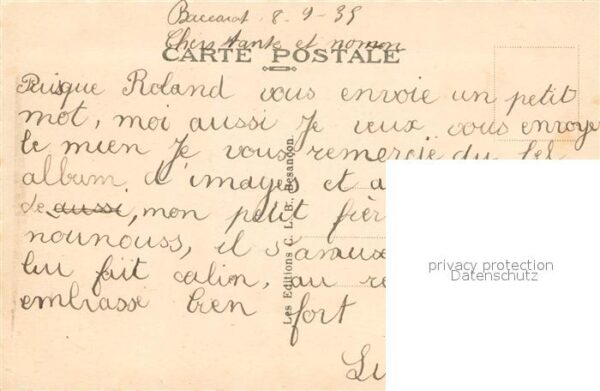 Baccarat 8-9-35
Chers tante et nonon
CARTE POSTALE
Puisque Roland vous envoie un petit
mot, moi aussi je veux vous envoye
le mien je vous remercie du bel
album d'images et a
de aussi, mon petit frèr
nounouss, il s'amuse
lui fait calin, au re
embrasse bien fort
Lu
Les Editions C. L. B. Besançon.
privacy protection
Datenschutz